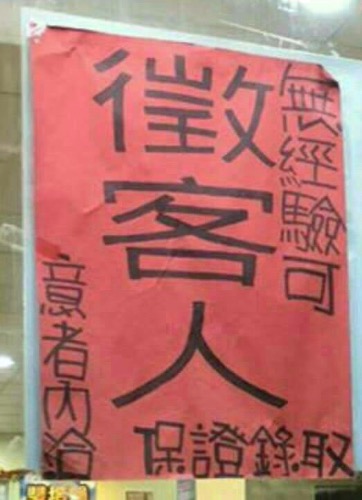 徵客人
無經驗可
意者內洽
保證錄取